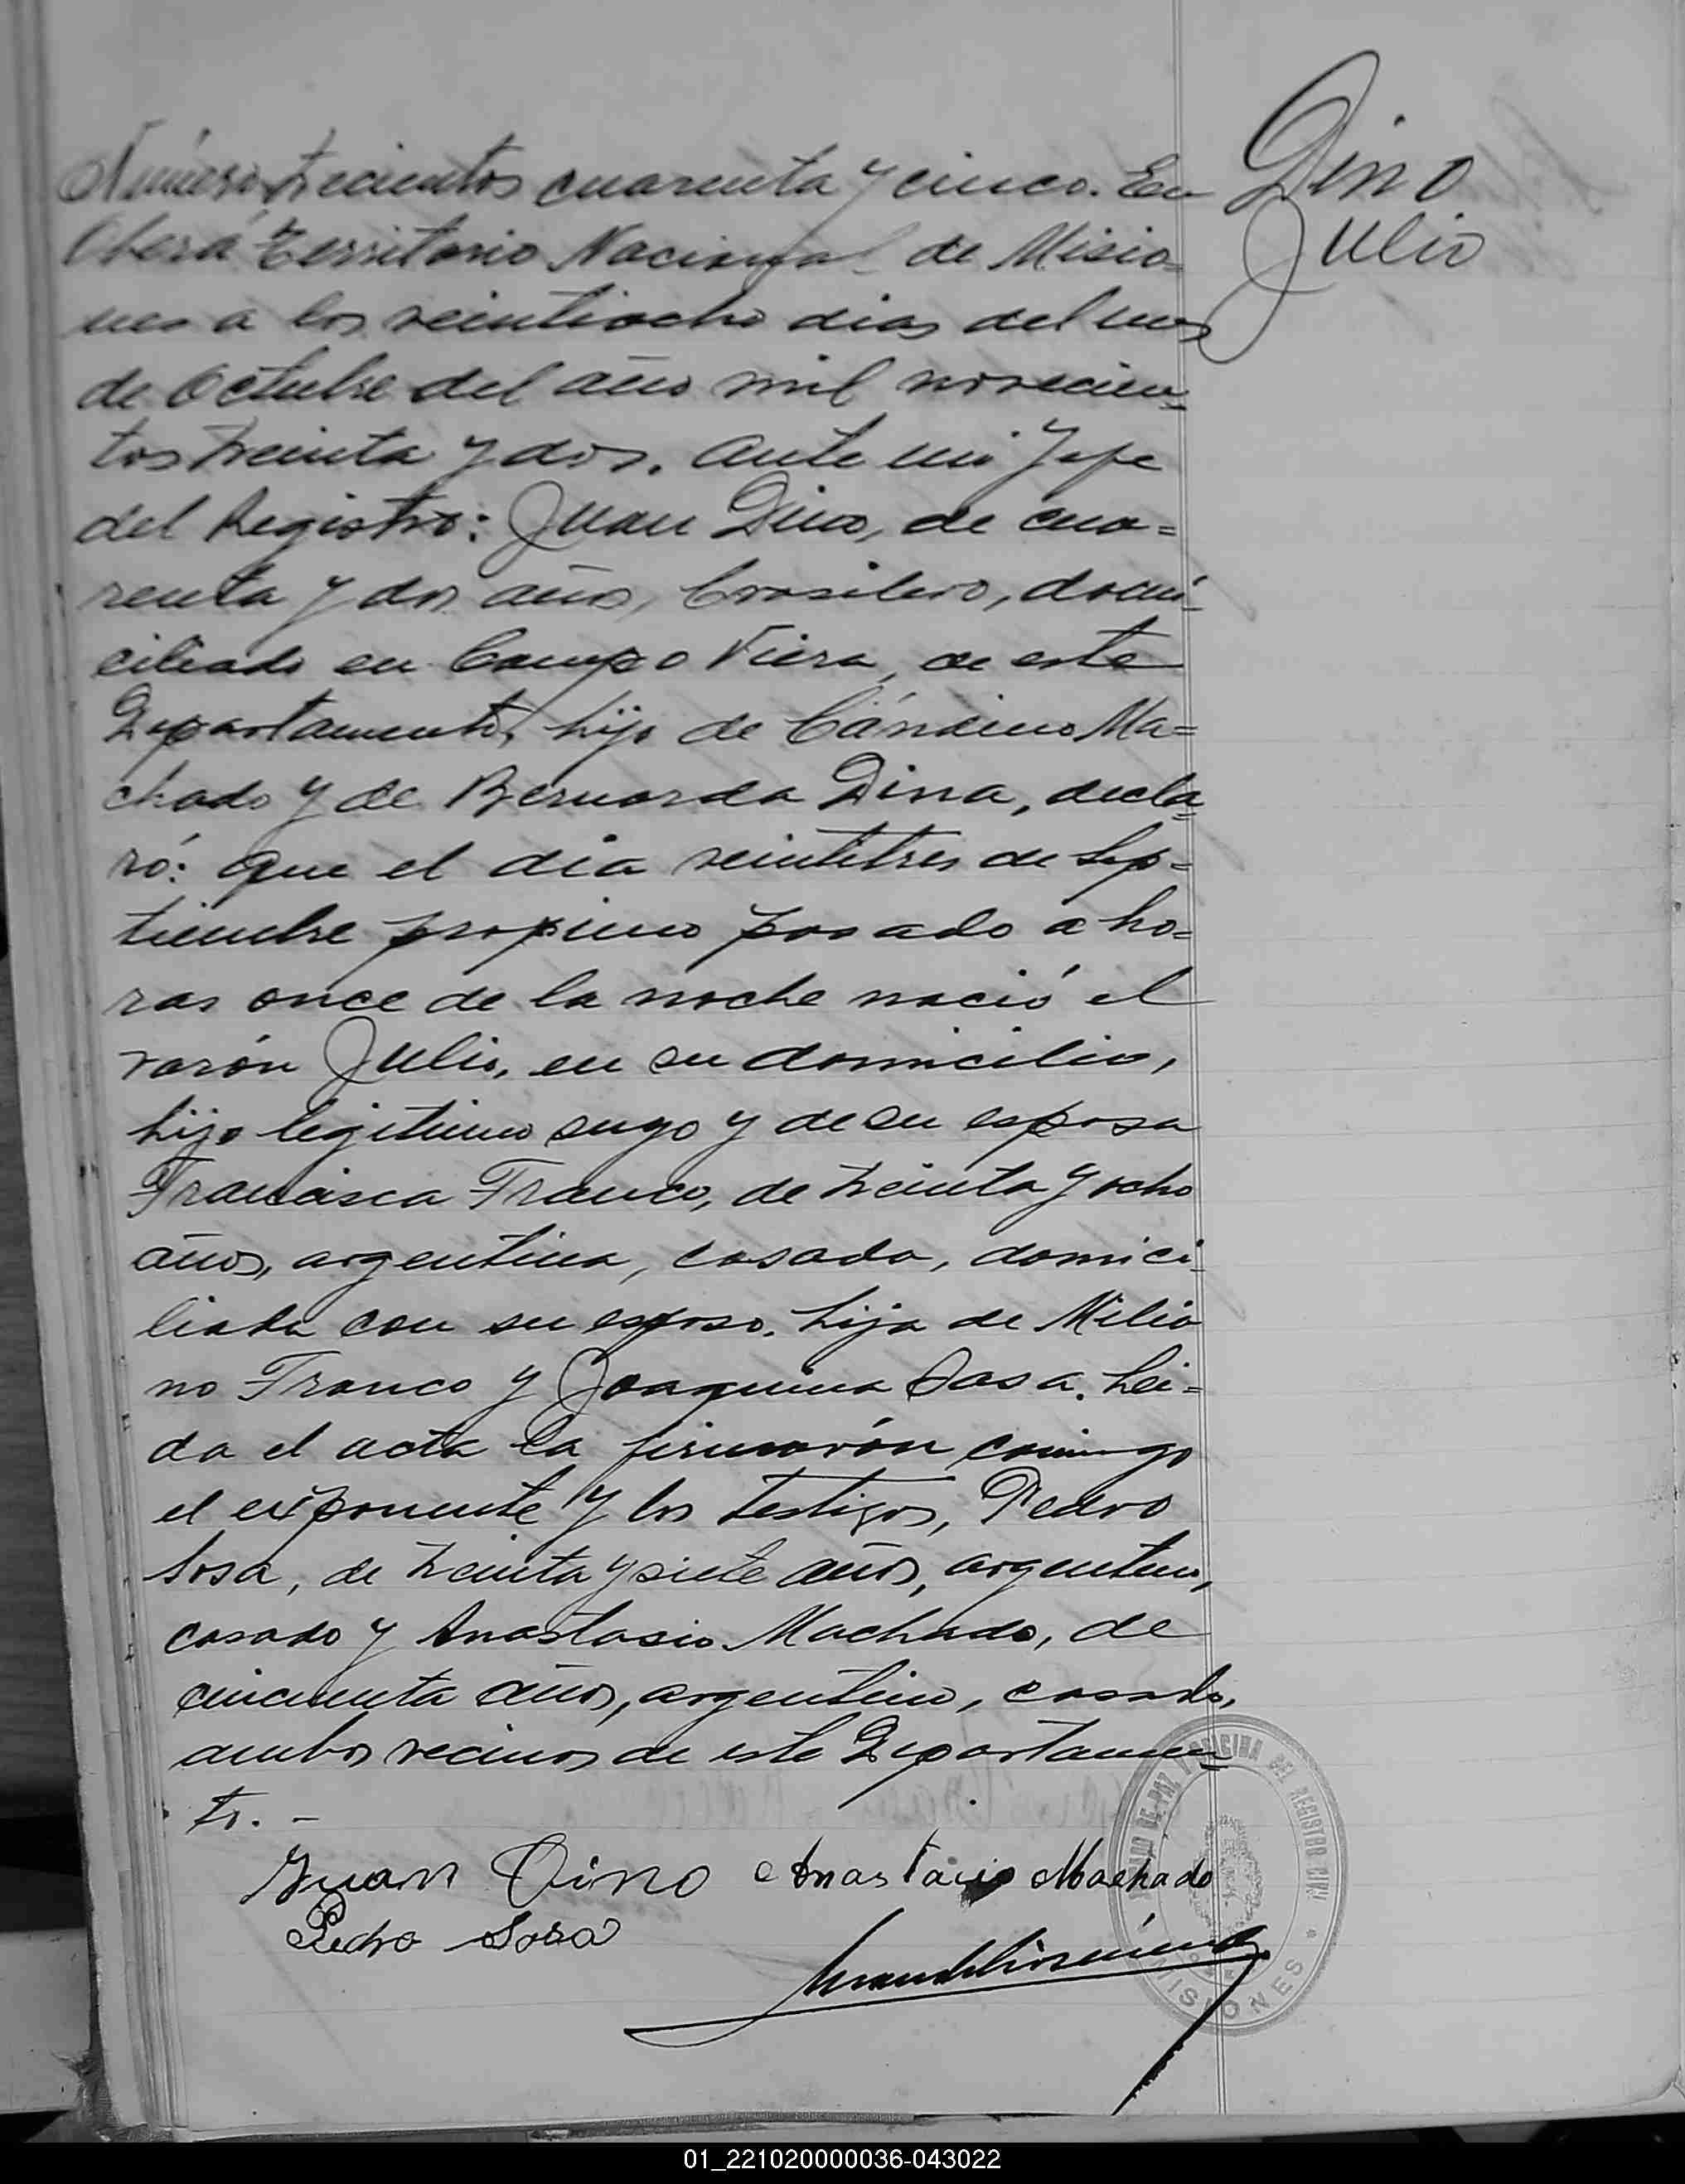 Dino
Julio
Número trecientos cuarenta y cinco. En
Oberá Territorio Nacional de Misio=
nes a los veintiocho dias del mes
de Octubre del año mil novecien=
tos treinta y dos. Ante mi Jefe
del Registro: Juan Dino, de cua=
renta y dos años, brasilero, domi=
ciliado en Campo Viera, de este
Departamento, hijo de Cándino Ma=
chado y de Bernarda Dina, decla=
ró: que el dia veintitres de Sep=
tiembre propimo pasado a ho=
ras once de la noche nació el
varón Julio, en su domicilio,
hijo legitimo suyo y de su esposa
Francisca Franco, de treinta y ocho
años, argentina, casada, domici=
liada con su esposo, hija de Milia
no Franco y Joaquina Sasa. Lei=
da el acta la firmarón comigo
el exponente y los testigos, Pedro
Sosa, de treinta y siete años, argentino,
casado y Anastasio Machado, de
cincuenta años, argentino, casado,
ambos vecinos de este Departamen=
to. -
Juan Dino Anastacio Machado
Pedro Sosa
JUZGADO DE PAZ Y OFICINA DEL REGISTRO CIVIL
MISIONES
01_221020000036-043022